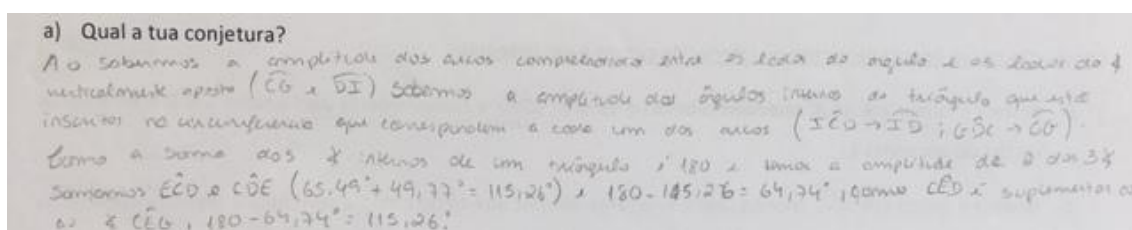 a) Qual a tua conjetura?
Ao sabermos a amplitude dos arcos compreendidos entre os lados do ângulo e os lados do ∢
verticalmente oposto (CG e DI) sabemos a amplitude dos ângulos internos do triângulo que está
inscritos na circunferência que correspondem a cada um dos arcos (IĈD → ID ; GD̂C → CG).
Como a soma dos ∢ internos de um triângulo é 180 e temos a amplitude de 2 dos 3∢
Somamos EĈD e CD̂E (65,49° + 49,77° = 115,26°) e 180 - 115,26 = 64,74°, como CÊD é suplementar
ao ∢ CÊG, 180 - 64,74° = 115,26°